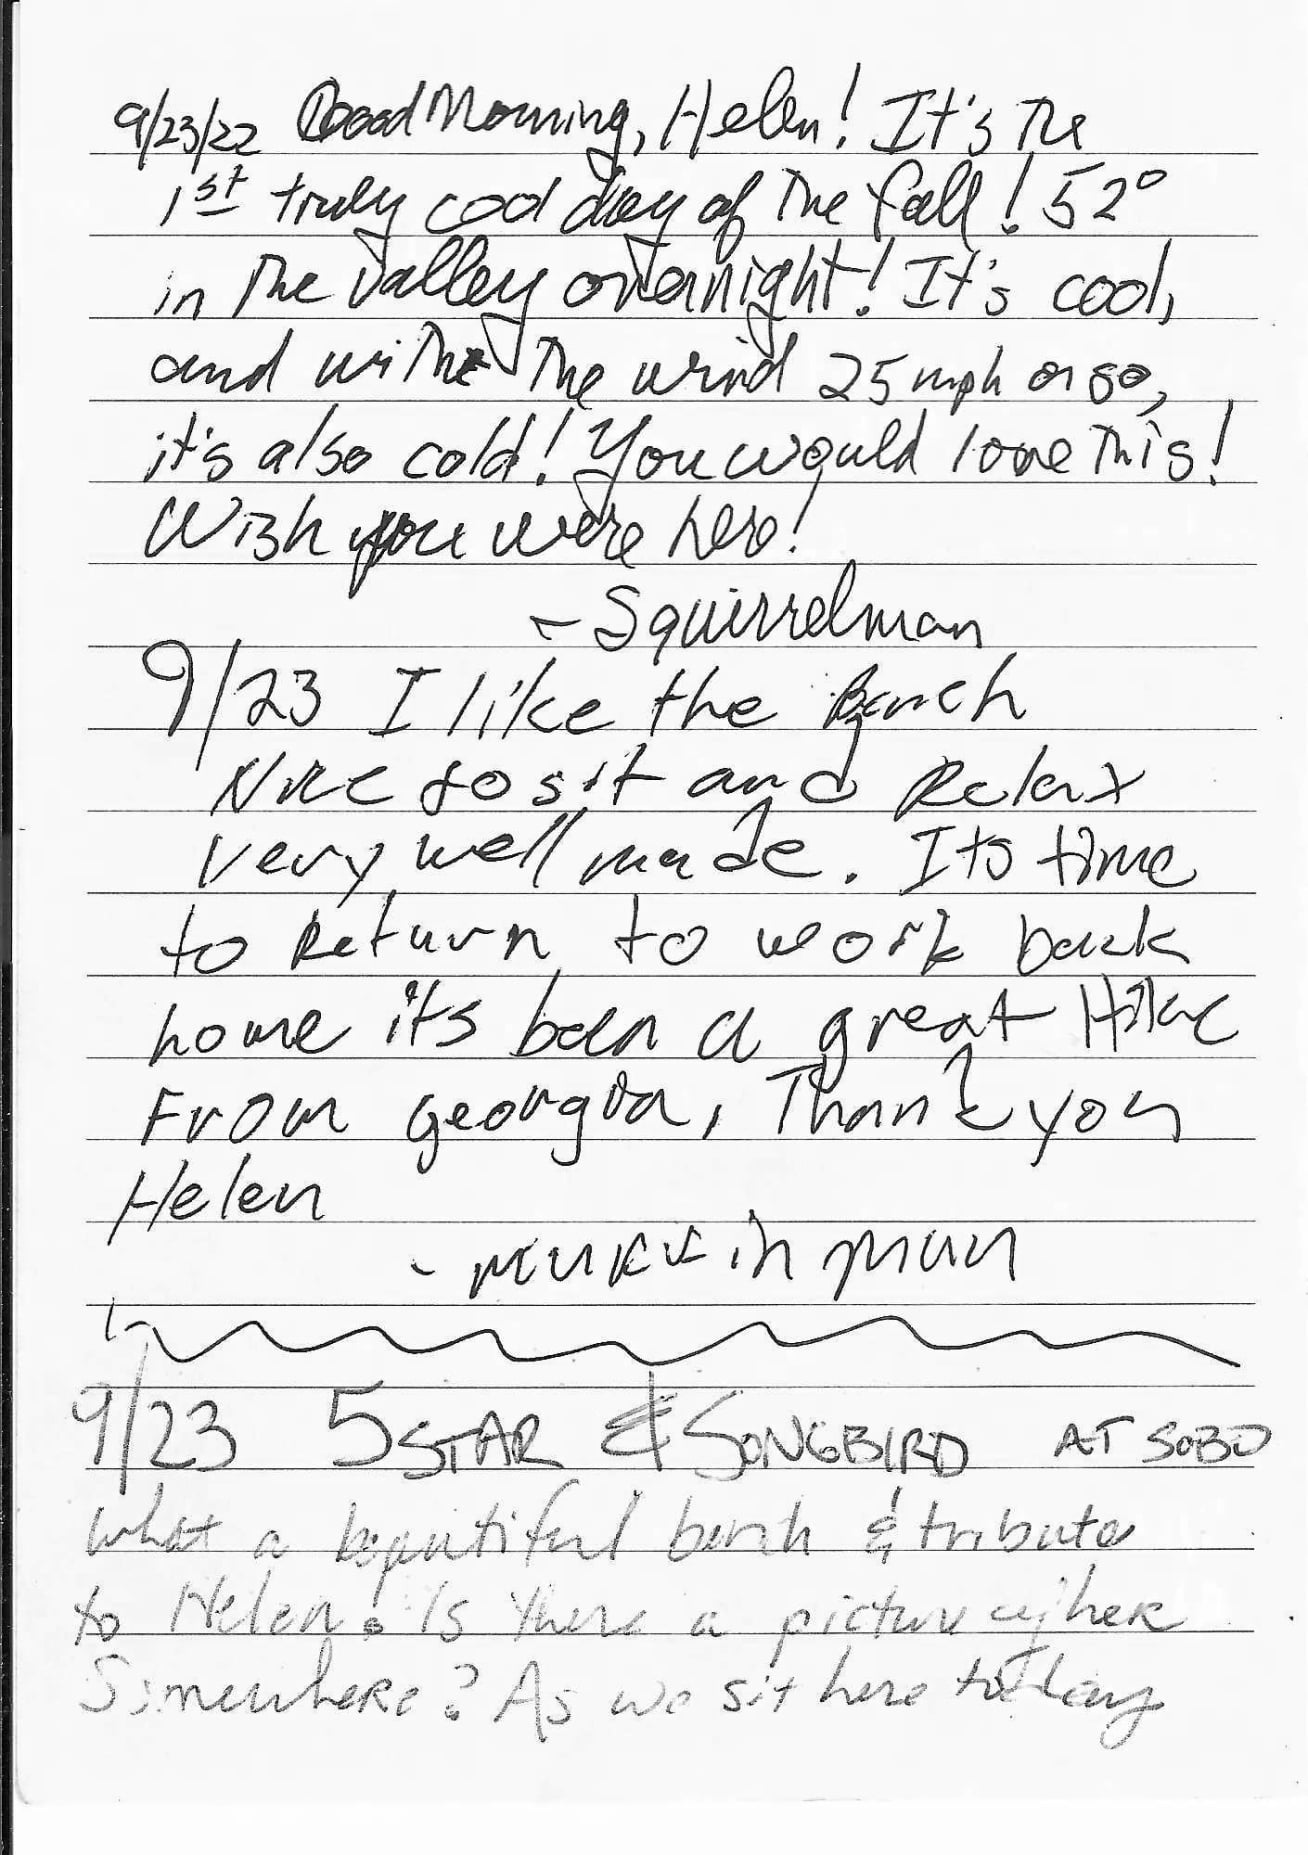 9/23/22 Good Morning, Helen! It's the
1st truly cool day of the fall! 52°
in the valley overnight! It's cool,
and with the wind 25 mph or so,
it's also cold! You would love this!
Wish you were here!
- Squirrelman
9/23 I like the Bench
Nice to sit and Relax
very well made. Its time
to Return to work back
home its been a great Hike
From Georgia, Thank you
Helen
- man
9/23 5 STAR & SONGBIRD AT SOBO
What a beautiful bench & tribute
to Helen. Is there a picture of her
Somewhere? As we sit here today